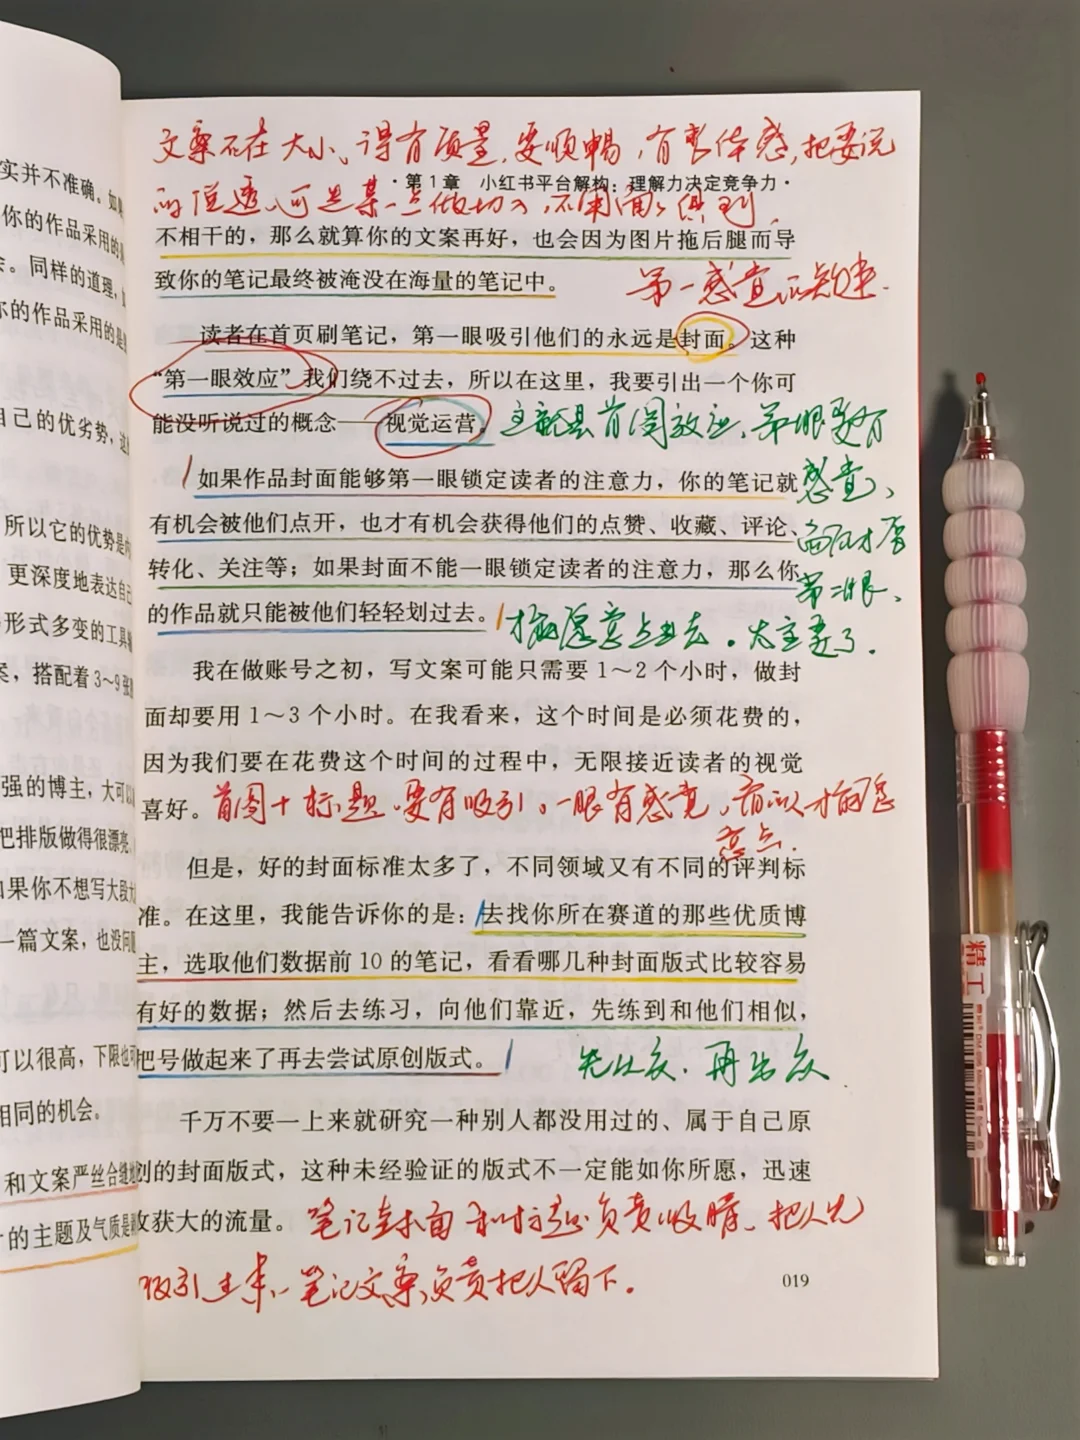 文案不在大小、得有质量,要顺畅,有整体感,把要说
·第1章 小红书平台解构:理解力决定竞争力·
的说透、可是某一点做切入,不用面面俱到.
不相干的,那么就算你的文案再好,也会因为图片拖后腿而导
致你的笔记最终被淹没在海量的笔记中。
第一感觉
读者在首页刷笔记,第一眼吸引他们的永远是封面。这种
“第一眼效应”我们绕不过去,所以在这里,我要引出一个你可
能没听说过的概念——视觉运营。
这就是首图效应、第一眼要有
感觉、
而后才有
第二眼、
如果作品封面能够第一眼锁定读者的注意力,你的笔记就
有机会被他们点开,也才有机会获得他们的点赞、收藏、评论、
转化、关注等;如果封面不能一眼锁定读者的注意力,那么你
的作品就只能被他们轻轻划过去。
才能愿意点进去。太重要了.
我在做账号之初,写文案可能只需要1～2个小时,做封
面却要用1～3个小时。在我看来,这个时间是必须花费的,
因为我们要在花费这个时间的过程中,无限接近读者的视觉
喜好。
首图+标题.要有吸引。一眼有感觉,所以才能愿
意点.
但是,好的封面标准太多了,不同领域又有不同的评判标
准。在这里,我能告诉你的是:去找你所在赛道的那些优质博
主,选取他们数据前10的笔记,看看哪几种封面版式比较容易
有好的数据;然后去练习,向他们靠近,先练到和他们相似,
把号做起来了再去尝试原创版式。
先从众.再出众
千万不要一上来就研究一种别人都没用过的、属于自己原
创的封面版式,这种未经验证的版式不一定能如你所愿,迅速
收获大的流量。
笔记封面和标题负责吸睛、把人先
吸引过来、笔记文案负责把人留下.
019
实并不准确。如
你的作品采用的
会。同样的道理,
你的作品采用的是
自己的优劣势,这
所以它的优势是
更深度地表达自己
形式多变的工具
案,搭配着3～9张
强的博主,大可以
把排版做得很漂亮
如果你不想写大段
一篇文案,也没问题
可以很高,下限也可
相同的机会。
和文案严丝合缝地
的主题及气质是
精工